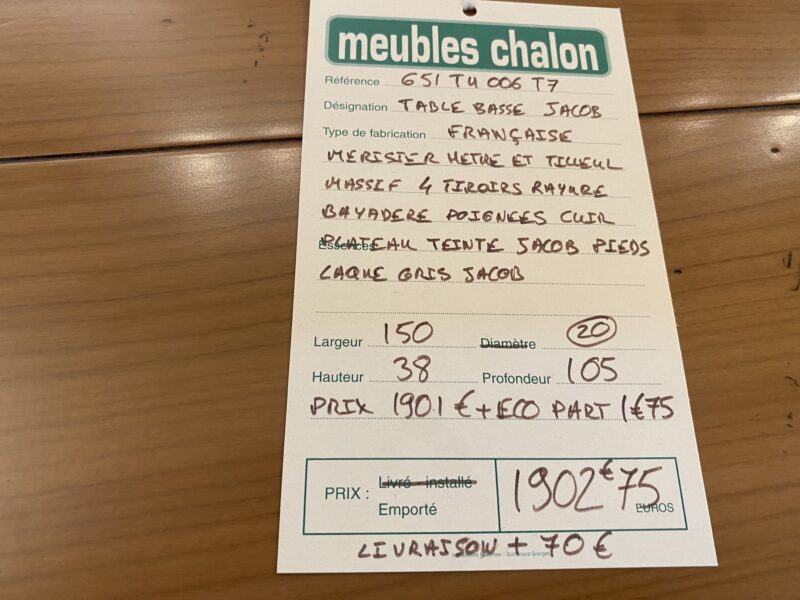 meubles chalon
Référence 651 TU 006 T7
Désignation TABLE BASSE JACOB
Type de fabrication FRANÇAISE
MERISIER HETRE ET TILLEUL
MASSIF 4 TIROIRS RAYURE
BAYADERE POIGNEES CUIR
Essences PLATEAU TEINTE JACOB PIEDS
LAQUE GRIS JACOB
Largeur 150 Diamètre 20
Hauteur 38 Profondeur 105
PRIX 1901 € + ECO PART 1€75
PRIX : Livré - installé
Emporté
1902€75
EUROS
LIVRAISON + 70 €